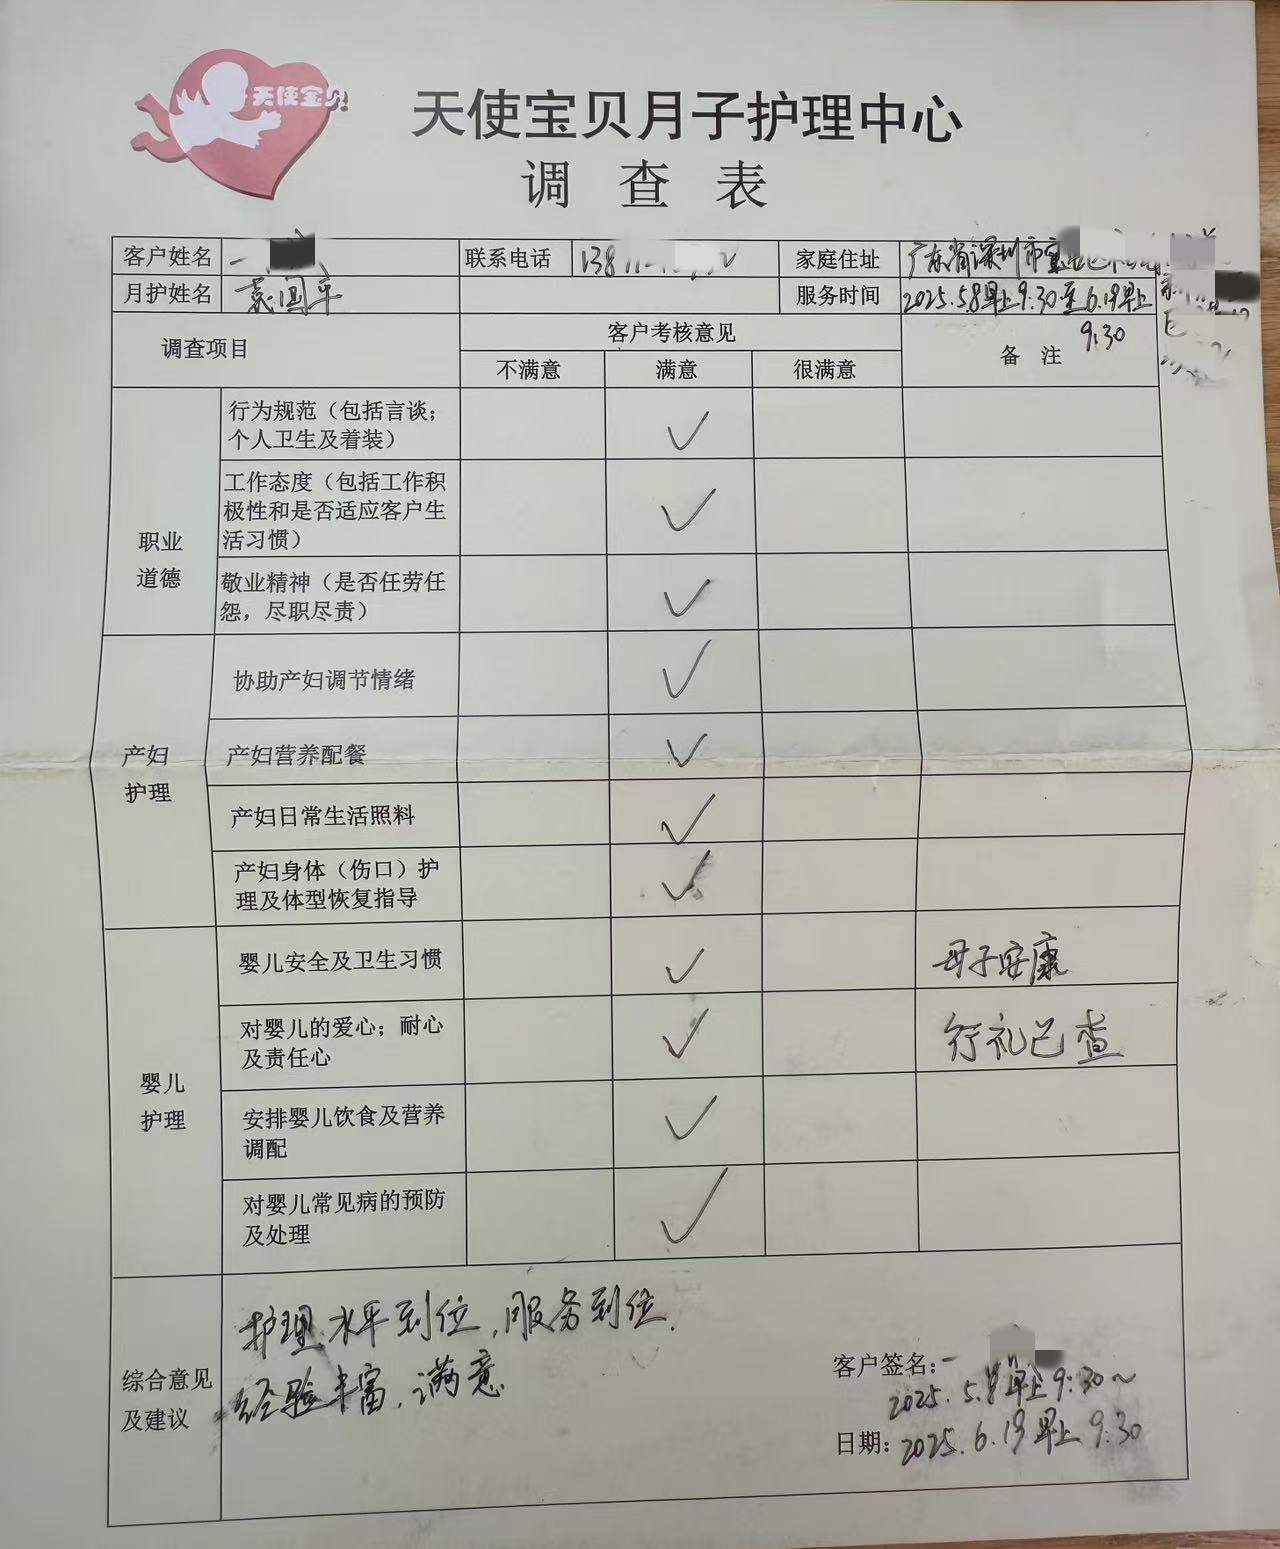 天使宝贝
天使宝贝月子护理中心
调查表
客户姓名 联系电话 138 家庭住址 广东省深圳市宝
月护姓名 袁国平 服务时间 2025.5.8早上9:30至6.19早上
9:30
调查项目 客户考核意见 备注
不满意 满意 很满意
职业
道德
行为规范（包括言谈；
个人卫生及着装） ✓
工作态度（包括工作积
极性和是否适应客户生
活习惯） ✓
敬业精神（是否任劳任
怨，尽职尽责） ✓
产妇
护理
协助产妇调节情绪 ✓
产妇营养配餐 ✓
产妇日常生活照料 ✓
产妇身体（伤口）护
理及体型恢复指导 ✓
婴儿
护理
婴儿安全及卫生习惯 ✓ 母子安康
对婴儿的爱心；耐心
及责任心 ✓ 行礼已查
安排婴儿饮食及营养
调配 ✓
对婴儿常见病的预防
及处理 ✓
综合意见
及建议
护理水平到位，服务到位，
经验丰富，满意
客户签名：
2025.5.8早上9:30～
日期：2025.6.19早上9:30